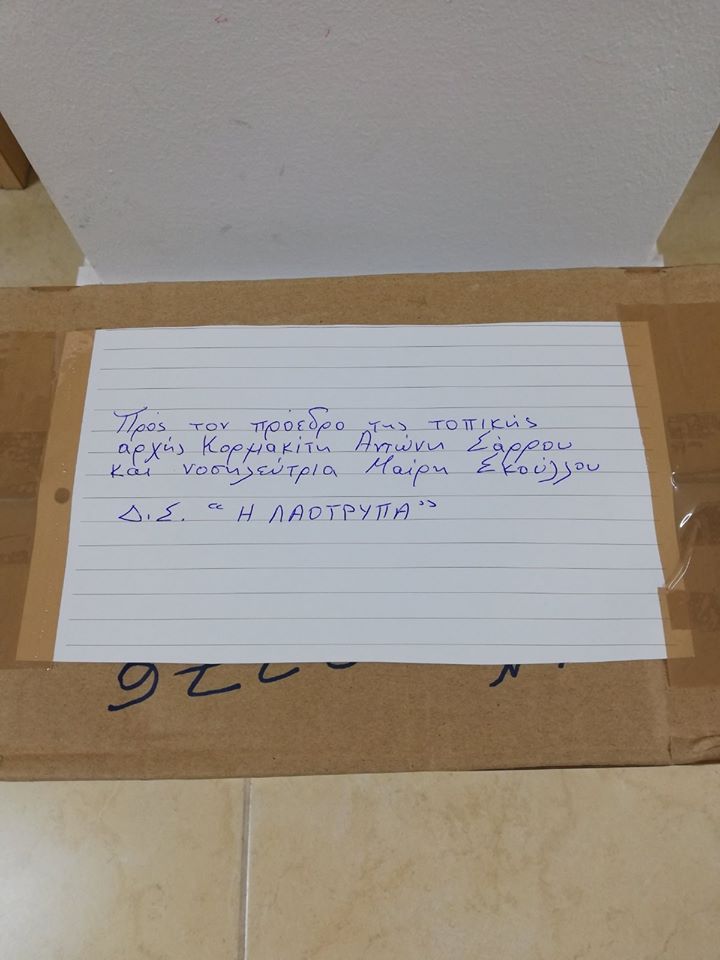 Πρός τον πρόεδρο της τοπικής
αρχής Κορμακίτη Αντώνη Σάρρου
και νοσηλεύτρια Μαίρη Σκούλλου
Δ.Σ. "Η ΛΑΟΤΡΥΠΑ"